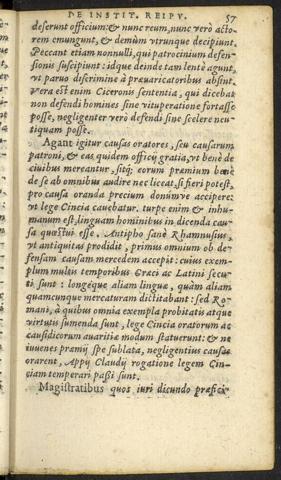 DE INSTIT. REIPV. 57
deserunt officium: & nunc reum, nunc verò acto-
rem emungunt, & demùm vtrunque decipiunt.
Peccant etiam nonnulli, qui patrocinium defen-
sionis suscipiunt: idque deinde tam lentè agunt,
vt paruo discrimine à præuaricatoribus absint.
Vera est enim Ciceronis sententia, qui dicebat
non defendi homines sine vituperatione fortasse
posse, negligenter verò defendi sine scelere neu-
tiquam posse.
Agant igitur causas oratores, seu causarum
patroni, & eas quidem officij gratia, vt benè de
ciuibus mereantur, sitq; eorum præmium benè
de se ab omnibus audire nec liceat, si fieri potest,
pro causa oranda precium donúmve accipere:
vt lege Cincia cauebatur. turpe enim & inhu-
manum est, linguam hominibus in dicenda cau-
sa quæstui esse. Antipho sanè Rhamnusius,
vt antiquitas prodidit, primus omnium ob de-
fensam causam mercedem accepit: cuius exem-
plum multis temporibus Græci ac Latini secu-
ti sunt: longéque aliam linguæ, quàm aliam
quamcunque mercaturam dictitabant: sed Ro-
mani, à quibus omnia exempla probitatis atque
virtutis sumenda sunt, lege Cincia oratorum ac
causidicorum auaritiæ modum statuerunt: & ne
iuuenes præmij spe sublata, negligentius causas
orarent, Appij Claudij rogatione legem Cin-
ciam temperari passi sunt.
Magistratibus quos iuri dicundo præfici-